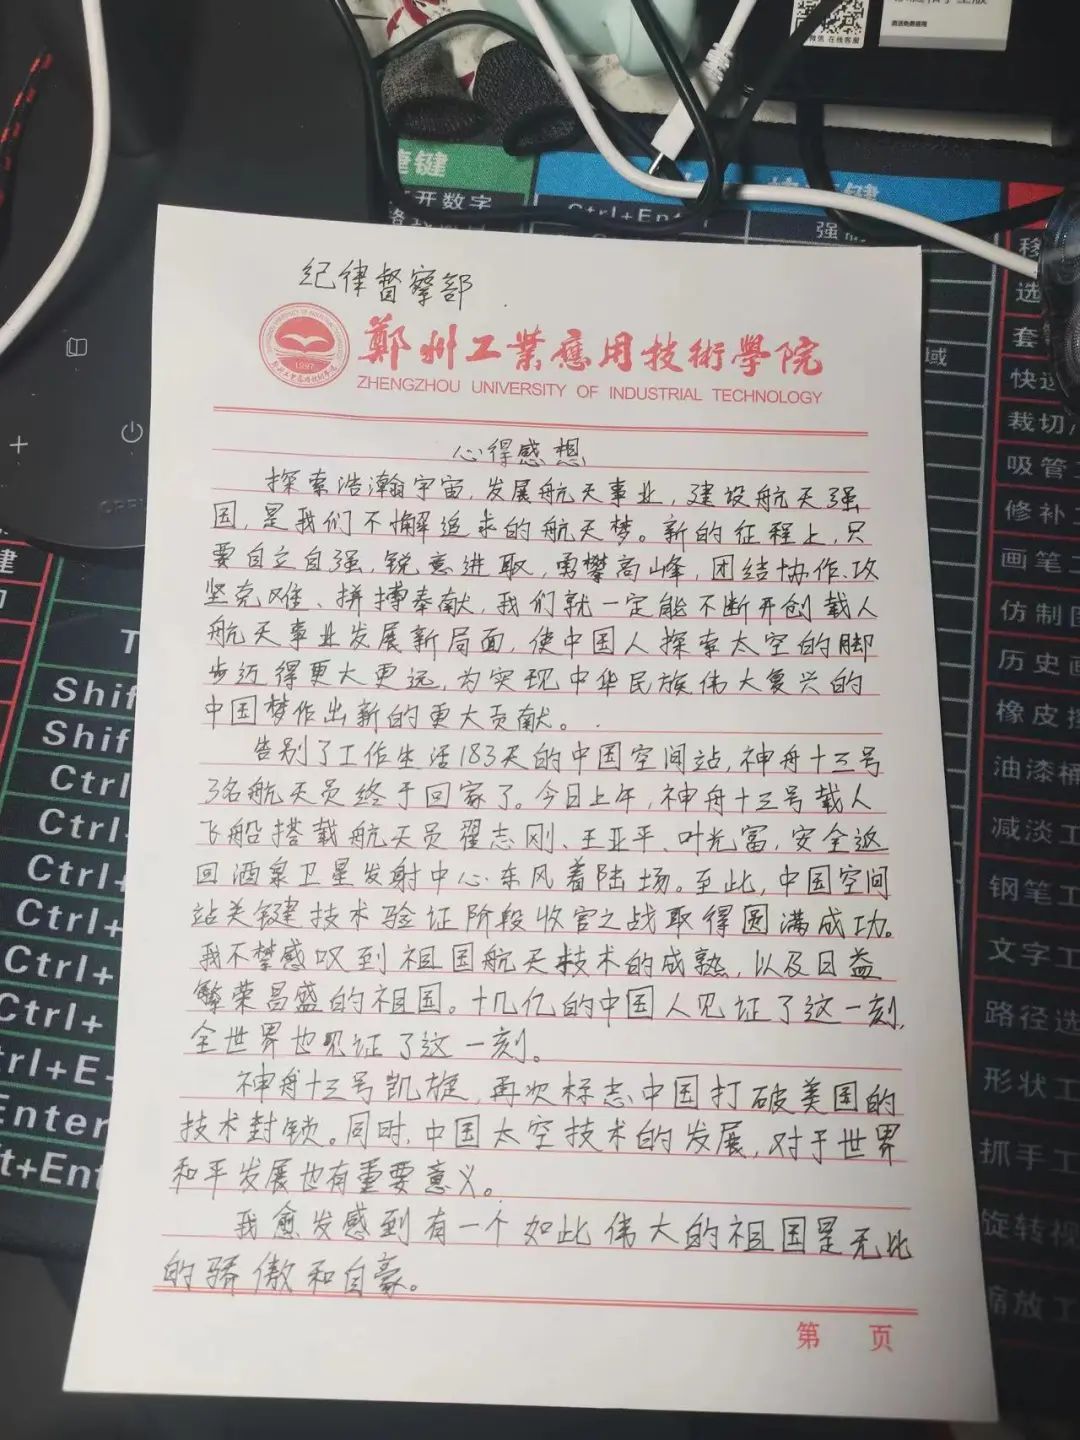 微信 在线客服
捷键
开数字
Ctrl+Enter
强
纪律督察部
鄭州工業應用技術學院
ZHENGZHOU UNIVERSITY OF INDUSTRIAL TECHNOLOGY
1997
心得感想
探索浩瀚宇宙，发展航天事业，建设航天强
国，是我们不懈追求的航天梦。新的征程上，只
要自立自强，锐意进取，勇攀高峰，团结协作、攻
坚克难、拼搏奉献，我们就一定能不断开创载人
航天事业发展新局面，使中国人探索太空的脚
步迈得更大更远，为实现中华民族伟大复兴的
中国梦作出新的更大贡献。
告别了工作生活183天的中国空间站，神舟十三号
3名航天员终于回家了。今日上午，神舟十三号载人
飞船搭载航天员翟志刚、王亚平、叶光富，安全返
回酒泉卫星发射中心东风着陆场。至此，中国空间
站关键技术验证阶段收官之战取得圆满成功。
我不禁感叹到祖国航天技术的成熟，以及日益
繁荣昌盛的祖国。十几亿的中国人见证了这一刻，
全世界也见证了这一刻。
神舟十三号凯旋，再次标志中国打破美国的
技术封锁。同时，中国太空技术的发展，对于世界
和平发展也有重要意义。
我愈发感到有一个如此伟大的祖国是无比
的骄傲和自豪。
第 页
Shif
Shif
Ctrl
Ctrl
Ctrl+
Ctrl+
Ctrl+
Ctrl+
trl+E
Enter
t+Ent
域
移
选
套
快速
裁切
吸管工
修补工
画笔工
仿制图
历史画
橡皮擦
油漆桶
减淡工
钢笔工
文字工
路径选
形状工
抓手工
旋转视
缩放工